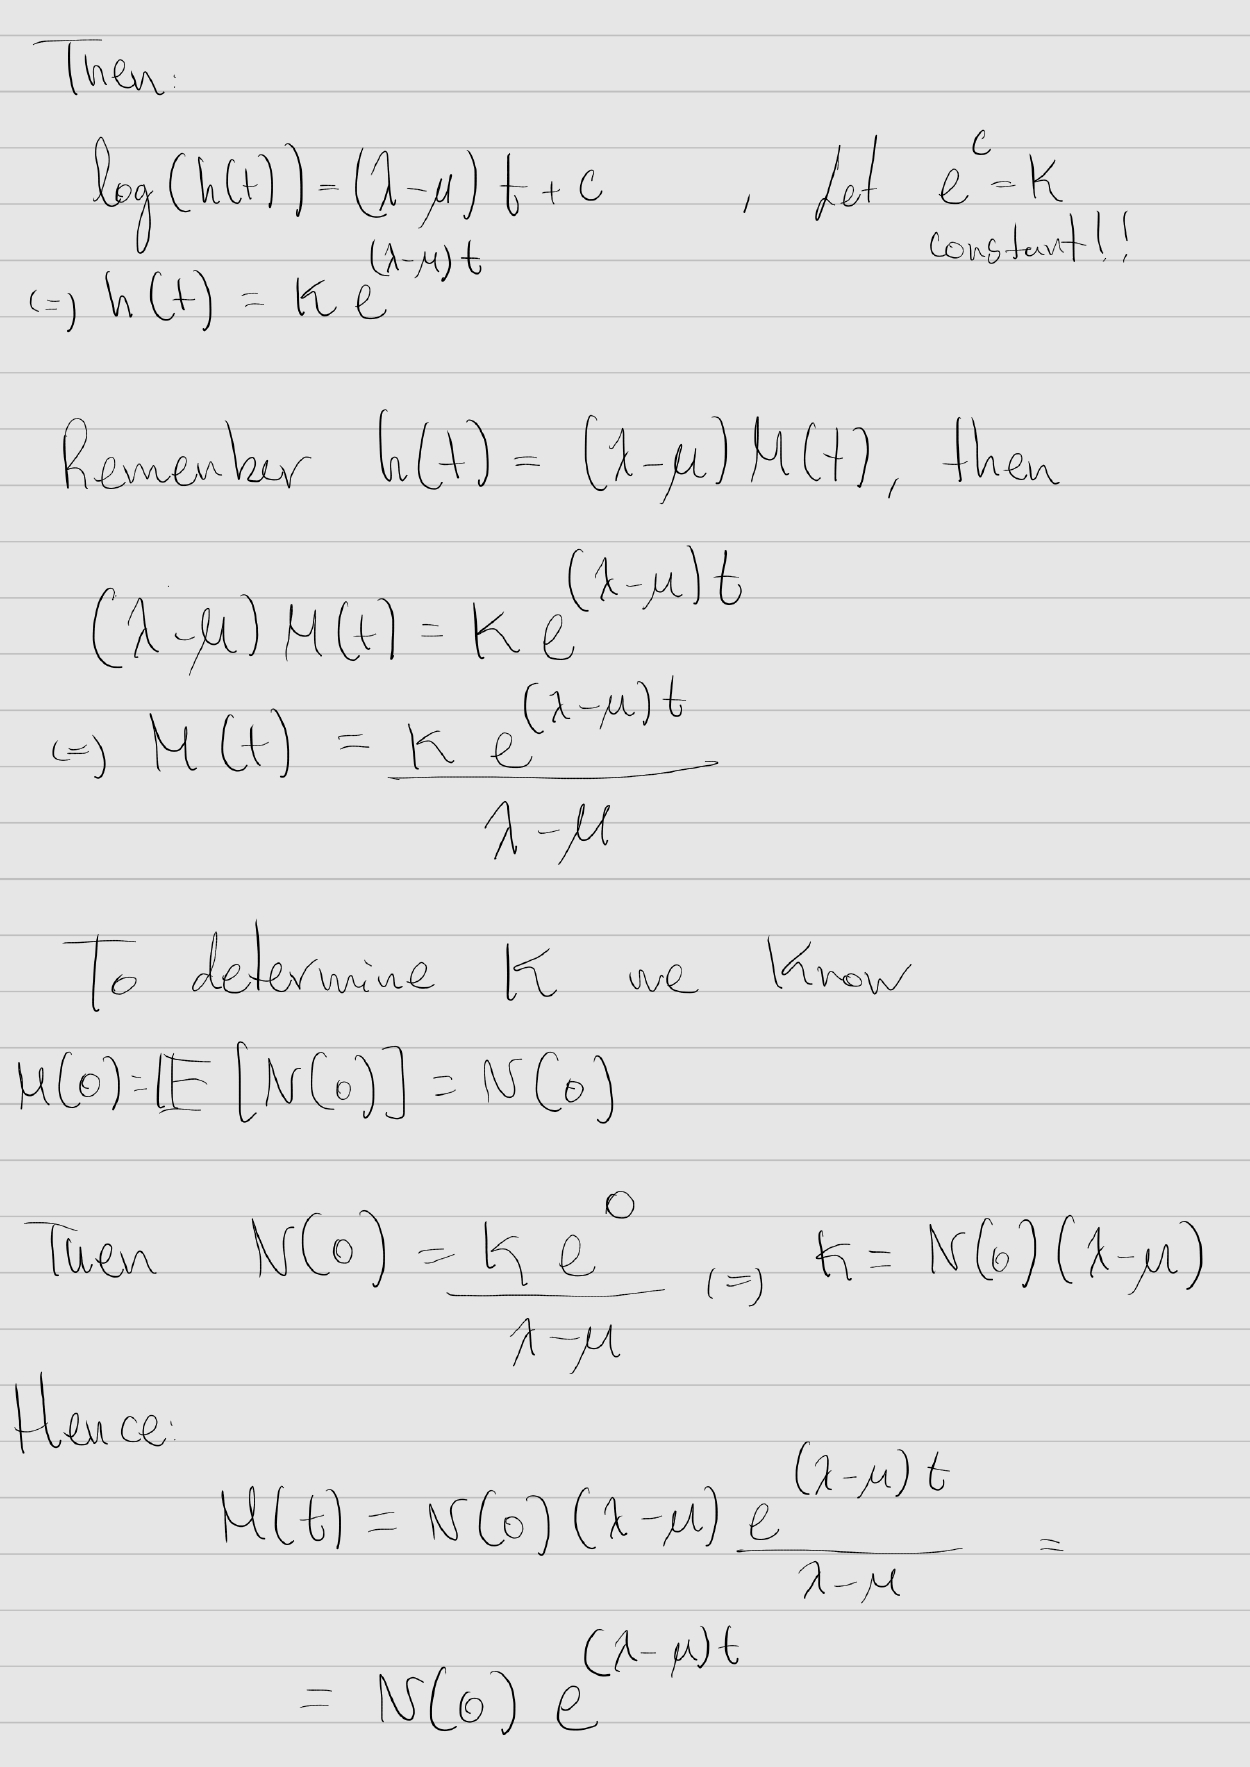 Then:
log(h(t)) = (λ-μ) t + c , Let e^c = K
constant!!
(=) h(t) = K e^{(λ-μ)t}
Remember h(t) = (λ-μ) M(t), then
(λ-μ) M(t) = K e^{(λ-μ)t}
(=) M(t) = \frac{K e^{(λ-μ)t}}{λ-μ}
To determine K we know
M(0) = 𝔼[N(0)] = N(0)
Then N(0) = \frac{K e^0}{λ-μ} (=) K = N(0)(λ-μ)
Hence:
M(t) = N(0)(λ-μ) \frac{e^{(λ-μ)t}}{λ-μ} =
= N(0) e^{(λ-μ)t}